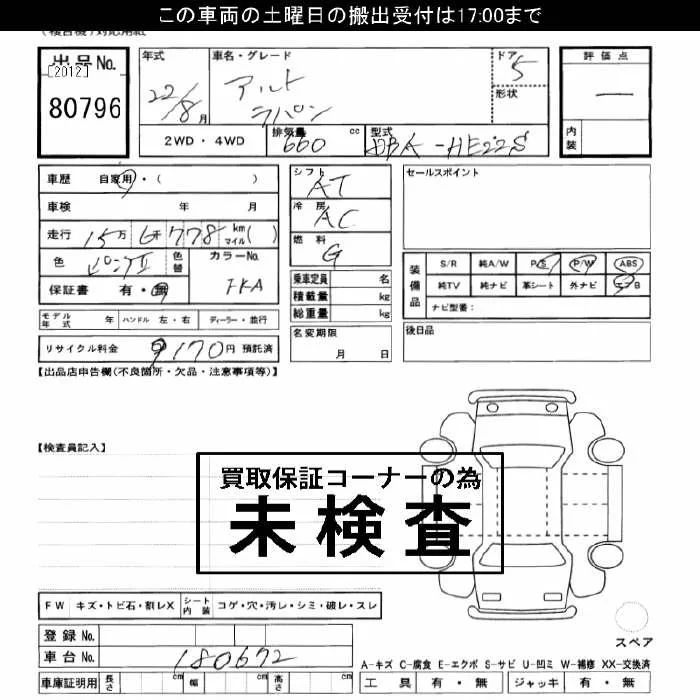 この車両の土曜日の搬出受付は17:00まで
(複合機)対応用紙
出品No.
[2012]
80796
年式
22/8月
車名・グレード
アルト
ラパン
ドア
5
形状
評価点
―
内装
2WD・4WD
排気量
660 cc
型式
DBA-HE22S
車歴 自家用・( )
車検 年 月
走行 15万6千778 km マイル( )
色 ピンクII 色替
カラーNo.
FKA
保証書 有・無
モデル年式 年 ハンドル 左・右 ディーラー・並行
リサイクル料金 9170円 預託済
シフト
AT
冷房
AC
燃料
G
乗車定員 名
積載量 kg
総重量 kg
名変期限
月 日
セールスポイント
装備品
S/R 純A/W P/S P/W ABS
純TV 純ナビ 革シート 外ナビ エアB
ナビ型番:
後日品
【出品店申告欄(不良箇所・欠品・注意事項等)】
【検査員記入】
買取保証コーナーの為
未検査
FW キズ・トビ石・割レX シート内装 コゲ・穴・汚レ・シミ・破レ・スレ
登録No.
車台No. 180672
車庫証明用 長さ cm 幅 cm 高さ cm
スペア
A-キズ C-腐食 E-エクボ S-サビ U-凹ミ W-補修 XX-交換済
工具 有・無 ジャッキ 有・無